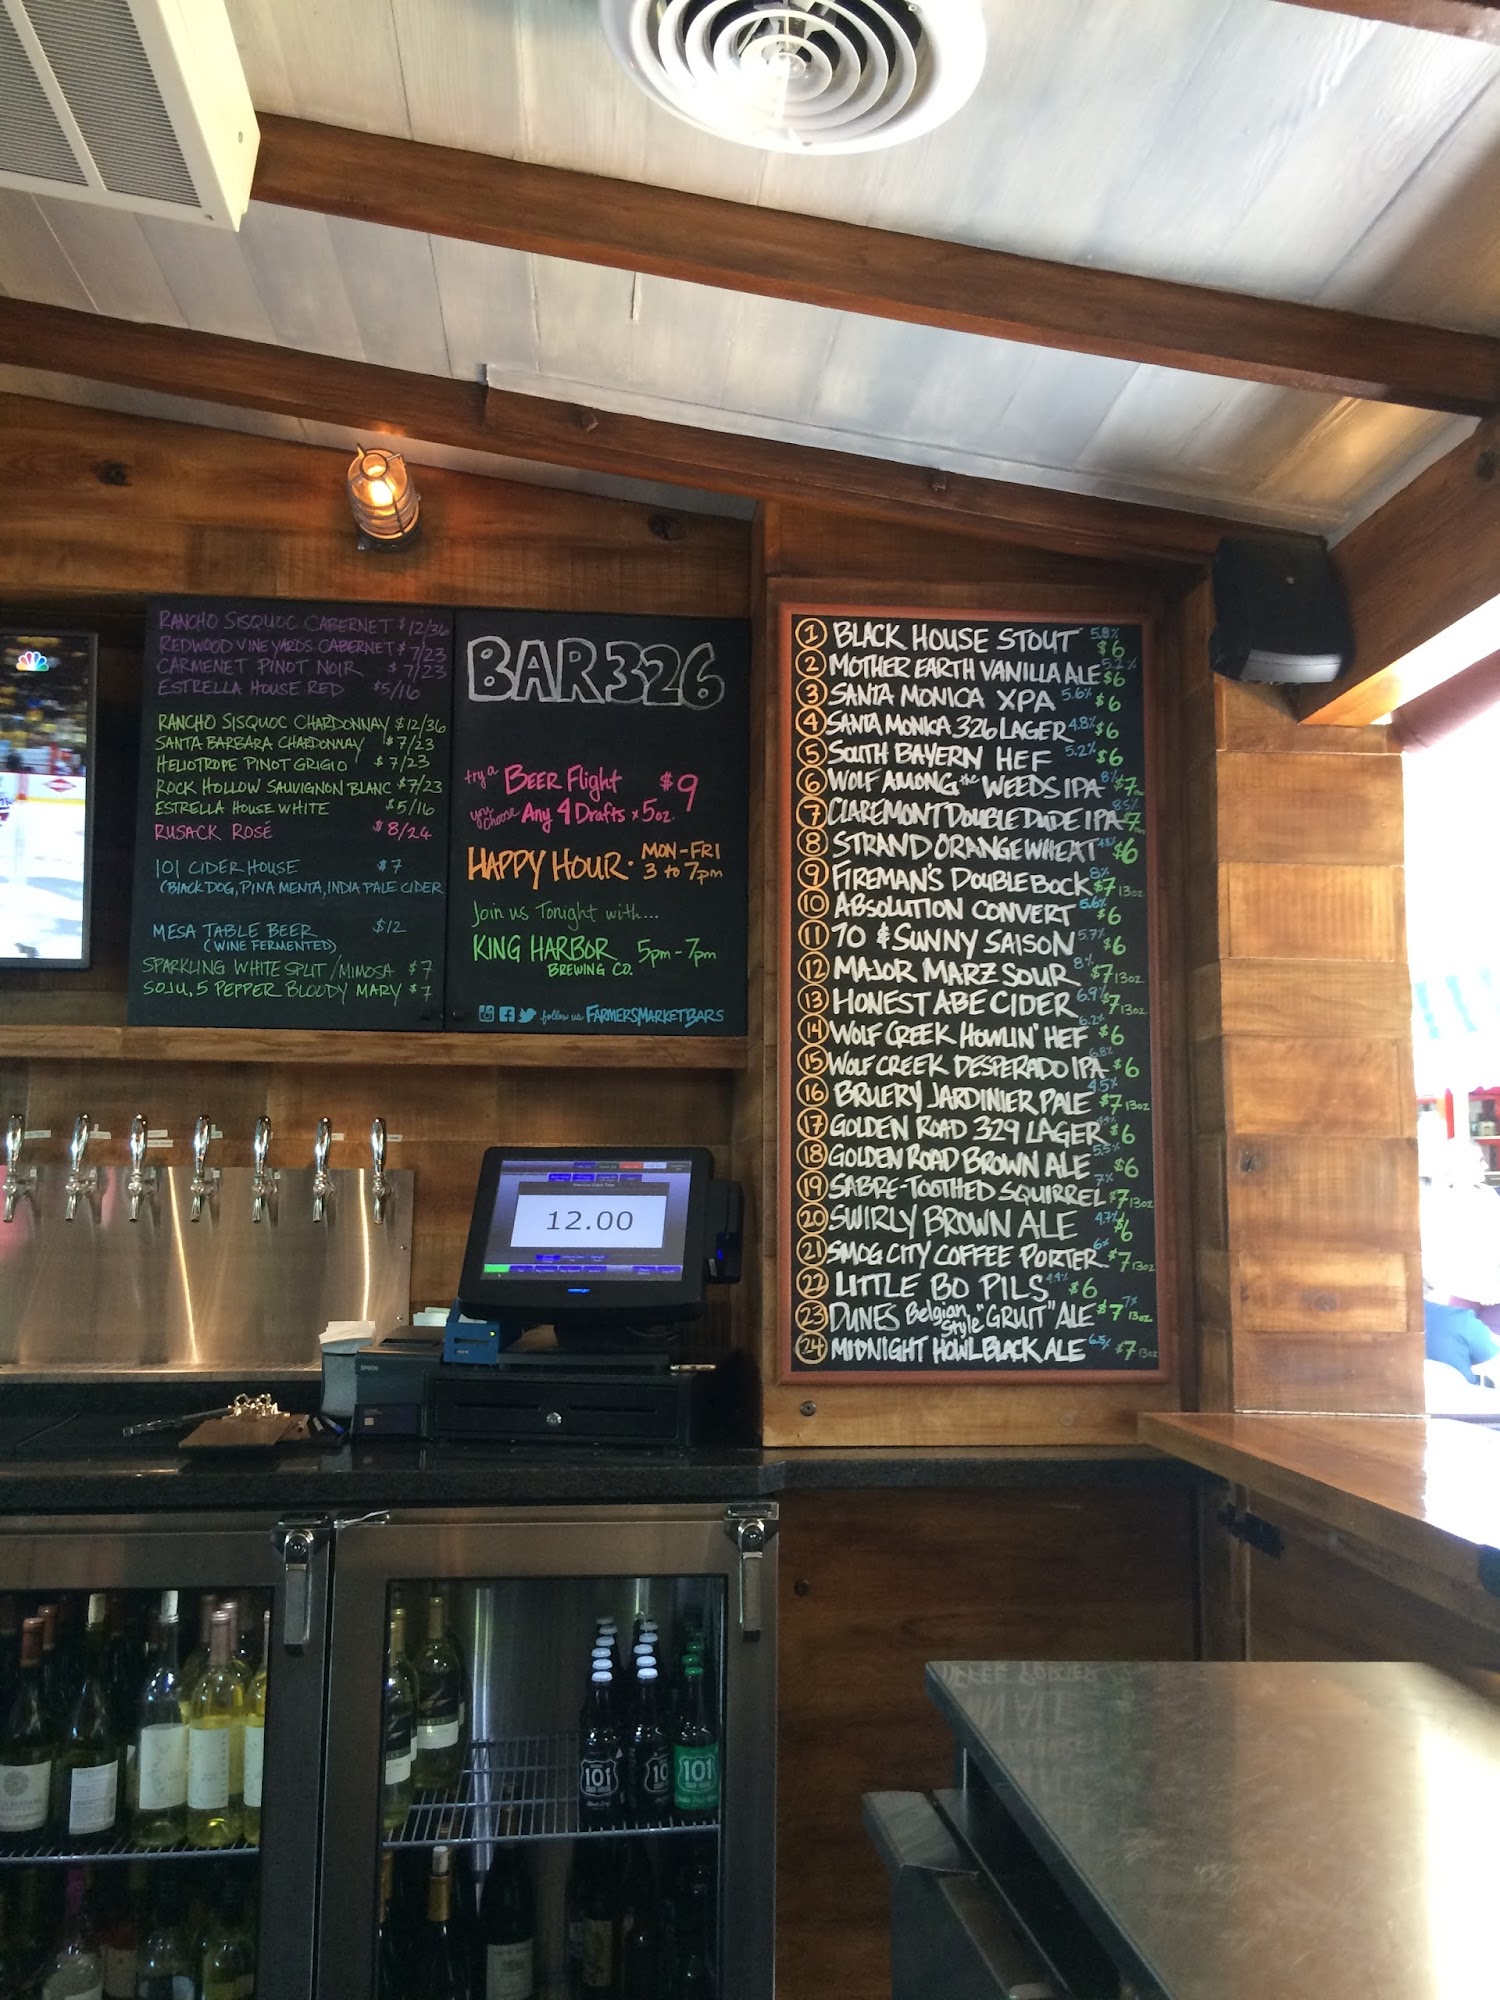 RANCHO SISQUOC CABERNET $12/36
REDWOOD VINEYARDS CABERNET $7/23
CARMENET PINOT NOIR $7/23
ESTRELLA HOUSE RED $5/16
RANCHO SISQUOC CHARDONNAY $12/36
SANTA BARBARA CHARDONNAY $7/23
HELIOTROPE PINOT GRIGIO $7/23
ROCK HOLLOW SAUVIGNON BLANC $7/23
ESTRELLA HOUSE WHITE $5/16
RUSACK ROSÉ $8/24
101 CIDER HOUSE $7
(BLACK DOG, PINA MENTA, INDIA PALE CIDER
MESA TABLE BEER $12
(WINE FERMENTED)
SPARKLING WHITE SPLIT/MIMOSA $7
SOJU, 5 PEPPER BLOODY MARY $7
BAR 326
try a BEER Flight $9
you choose Any 4 Drafts x 5oz.
HAPPY HOUR · MON-FRI
3 to 7pm
Join us Tonight with...
KING HARBOR 5pm-7pm
BREWING CO.
follow us FARMERSMARKETBARS
1 BLACK HOUSE STOUT 5.8% $6
2 MOTHER EARTH VANILLA ALE 5.2% $6
3 SANTA MONICA XPA 5.6% $6
4 SANTA MONICA 326 LAGER 4.8% $6
5 SOUTH BAYERN HEF 5.2% $6
6 WOLF AMONG the WEEDS IPA 8% $7
7 CLAREMONT DOUBLE DUDE IPA 8.5% $7
8 STRAND ORANGE WHEAT $6
9 FIREMAN'S DOUBLE BOCK 8% $7 13oz
10 ABSOLUTION CONVERT 5.6% $6
11 70 & SUNNY SAISON 5.7% $6
12 MAJOR MARZ SOUR 8% $7 13oz
13 HONEST ABE CIDER 6.9% $7 13oz
14 WOLF CREEK HOWLIN' HEF 6.2% $6
15 WOLF CREEK DESPERADO IPA 6.8% $6
16 BRUERY JARDINIER PALE 4.5% $7 13oz
17 GOLDEN ROAD 329 LAGER $6
18 GOLDEN ROAD BROWN ALE 5.5% $6
19 SABRE-TOOTHED SQUIRREL 7% $7 13oz
20 SWIRLY BROWN ALE 4.7% $6
21 SMOG CITY COFFEE PORTER 6% $7 13oz
22 LITTLE BO PILS 4.4% $6
23 DUNES Belgian Style "GRUIT" ALE 7% $7 13oz
24 MIDNIGHT HOWL BLACK ALE 6.5% $7 13oz
12.00
EPSON
101
101